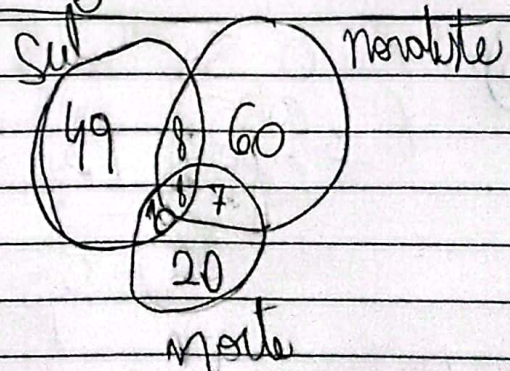 Sul
Nordeste
49 8 60
8 7
10
20
Norte